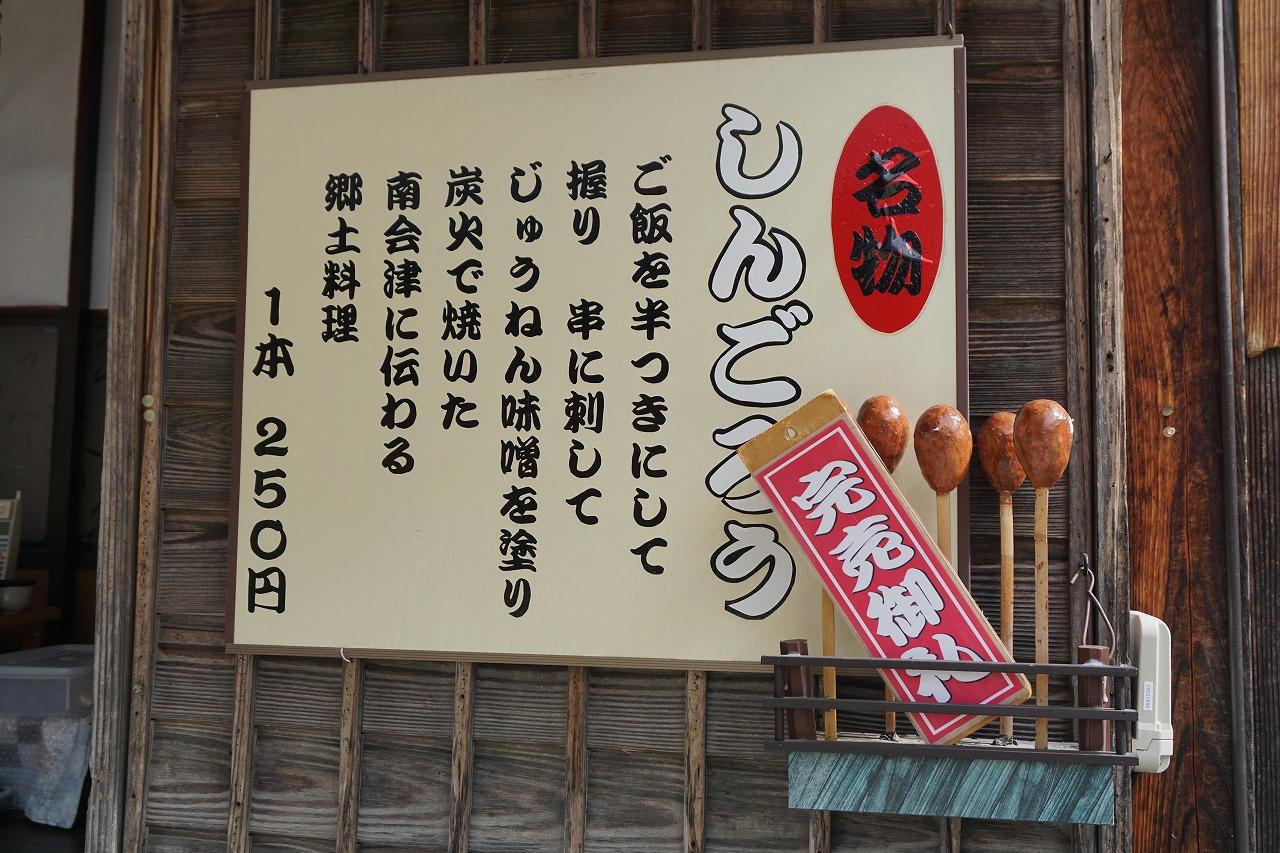 名物
しんごろう
ご飯を半つきにして
握り 串に刺して
じゅうねん味噌を塗り
炭火で焼いた
南会津に伝わる
郷土料理
1本 250円
完売御礼